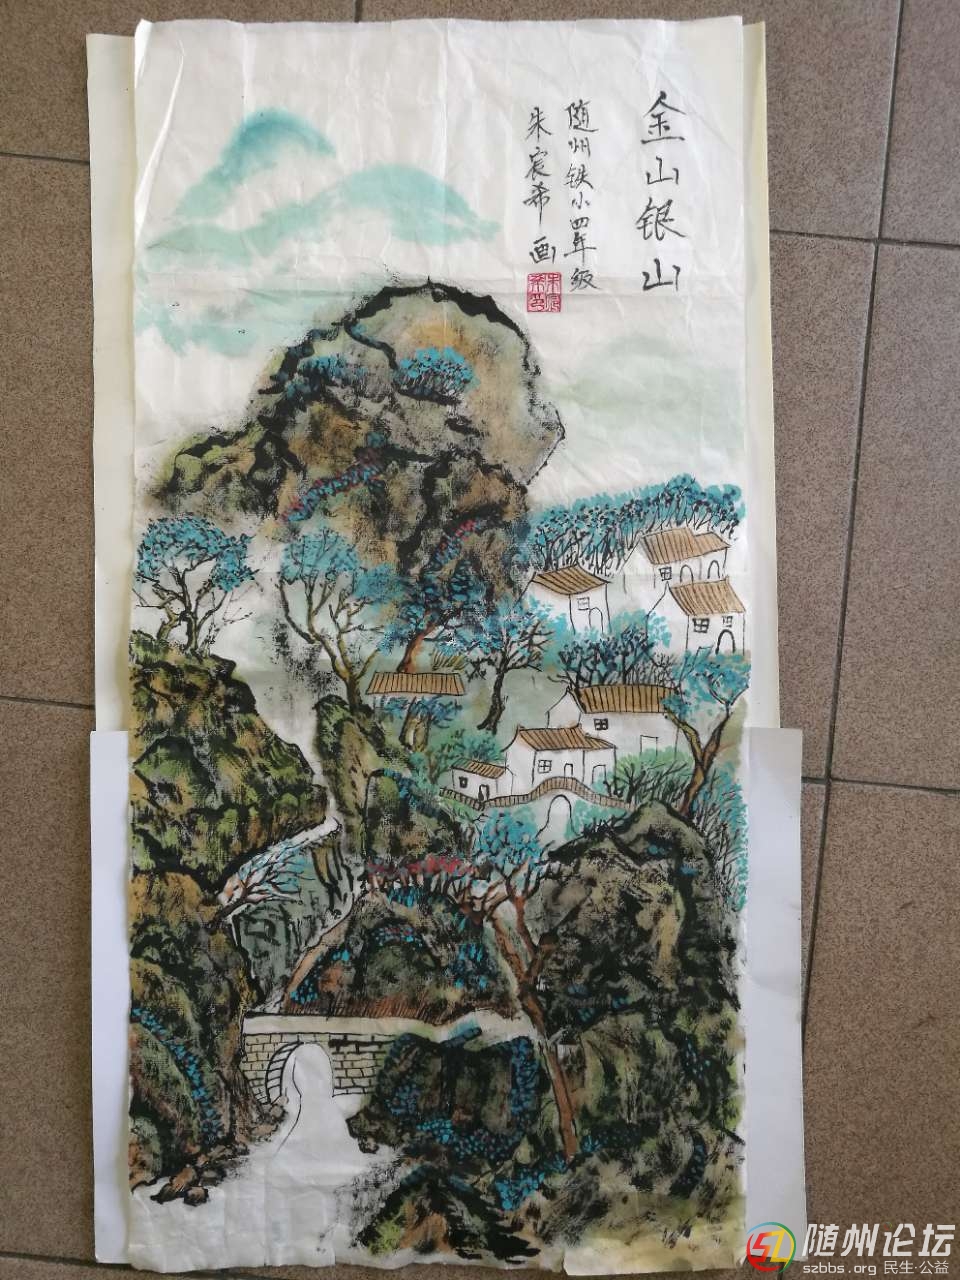 金山银山
随州铁小四年级
朱宸希 画
随州论坛
szbbs.org 民生·公益